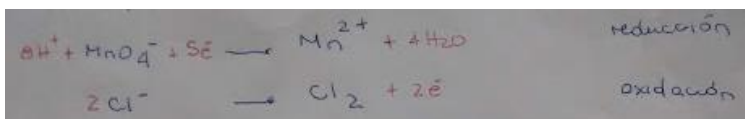 8H⁺ + MnO₄⁻ + 5é → Mn²⁺ + 4H₂O reducción
2Cl⁻ → Cl₂ + 2é oxidación